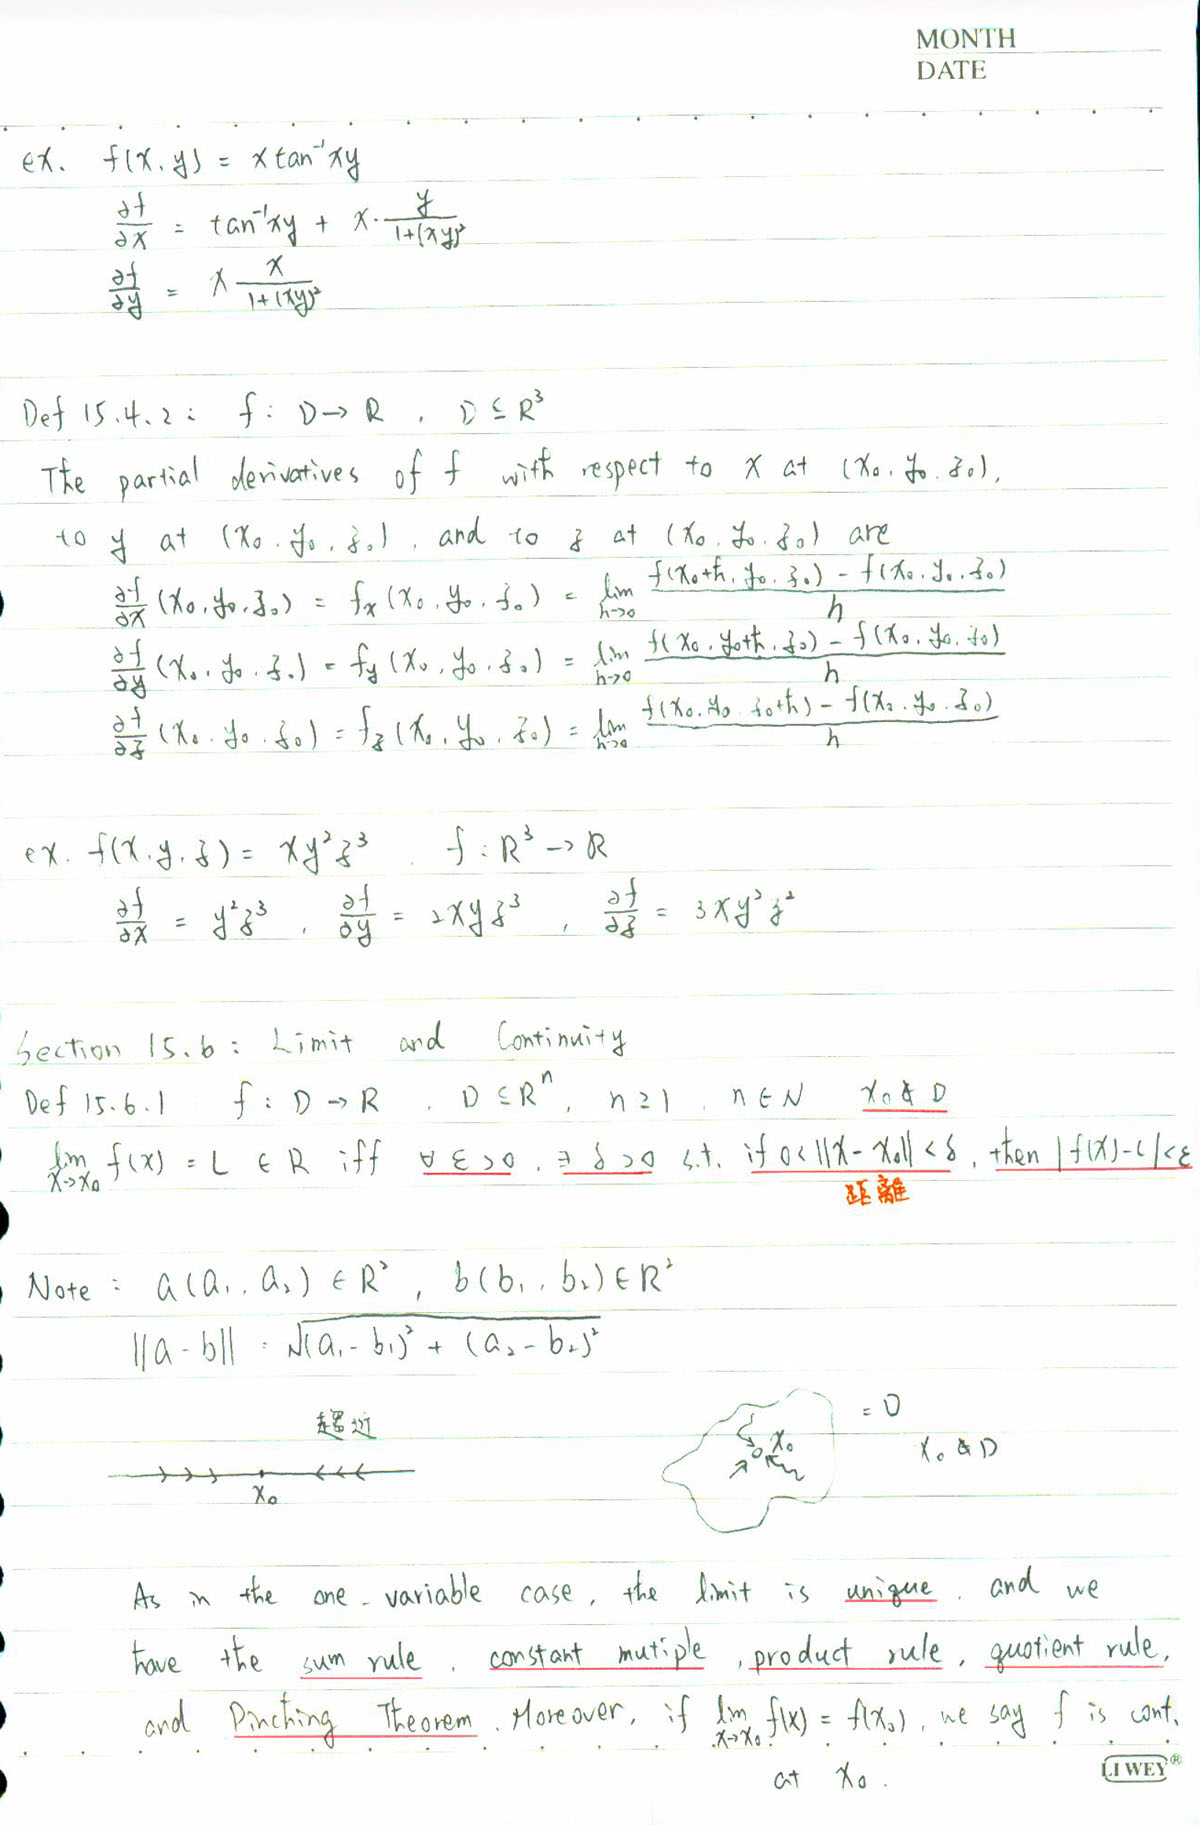 MONTH
DATE
ex. f(x, y) = x tan⁻¹xy
∂f/∂x = tan⁻¹xy + x · y/(1+(xy)²)
∂f/∂y = x x/(1+(xy)²)
Def 15.4.2: f: D → R, D ⊆ R³
The partial derivatives of f with respect to x at (x₀, y₀, z₀),
to y at (x₀, y₀, z₀), and to z at (x₀, y₀, z₀) are
∂f/∂x (x₀, y₀, z₀) = fₓ(x₀, y₀, z₀) = lim h→0 (f(x₀+h, y₀, z₀) - f(x₀, y₀, z₀))/h
∂f/∂y (x₀, y₀, z₀) = f_y(x₀, y₀, z₀) = lim h→0 (f(x₀, y₀+h, z₀) - f(x₀, y₀, z₀))/h
∂f/∂z (x₀, y₀, z₀) = f_z(x₀, y₀, z₀) = lim h→0 (f(x₀, y₀, z₀+h) - f(x₀, y₀, z₀))/h
ex. f(x, y, z) = xy²z³, f: R³ → R
∂f/∂x = y²z³, ∂f/∂y = 2xyz³, ∂f/∂z = 3xy²z²
Section 15.6: Limit and Continuity
Def 15.6.1 f: D → R, D ⊆ Rⁿ, n ≥ 1, n ∈ N x₀ & D
lim x→x₀ f(x) = L ∈ R iff ∀ ε > 0, ∃ δ > 0 s.t. if 0 < ||x - x₀|| < δ, then |f(x) - L| < ε
距離
Note: a(a₁, a₂) ∈ R², b(b₁, b₂) ∈ R²
||a - b|| = √((a₁ - b₁)² + (a₂ - b₂)²)
趨近
x₀
x₀
= D
x₀ & D
As in the one-variable case, the limit is unique, and we
have the sum rule, constant mutiple, product rule, quotient rule,
and Pinching Theorem. Moreover, if lim x→x₀ f(x) = f(x₀), we say f is cont.
at x₀.
LIWEY®